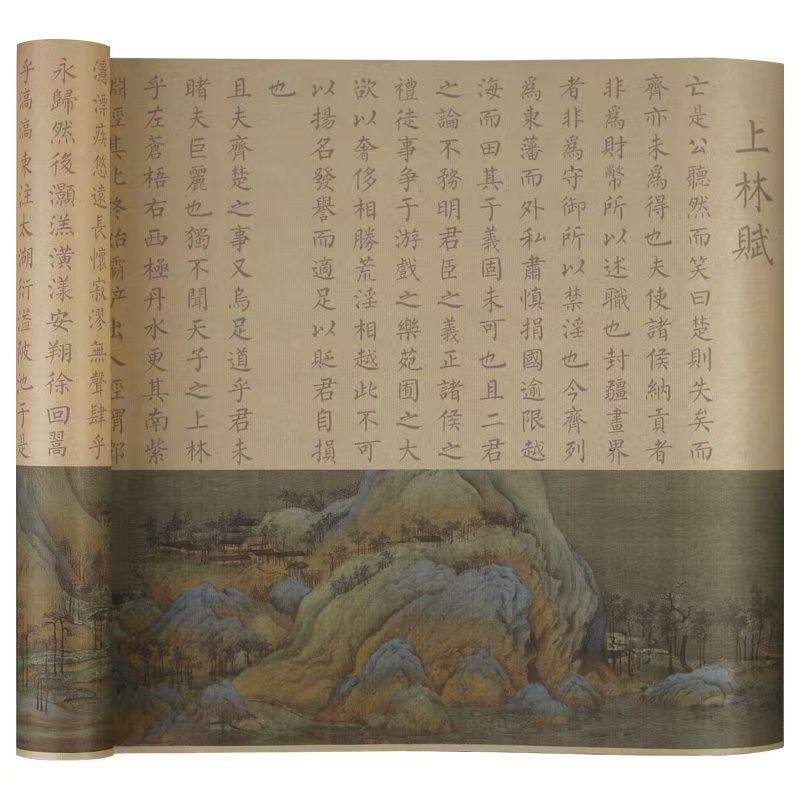 上林賦
亡是公聽然而笑曰楚則失矣而
齊亦未爲得也夫使諸侯納貢者
非爲財幣所以述職也封疆畫界
者非爲守御所以禁淫也今齊列
爲東藩而外私肅慎捐國逾限越
海而田其于義固未可也且二君
之論不務明君臣之義正諸侯之
禮徒事争于游戲之樂苑囿之大
欲以奢侈相勝荒淫相越此不可
以揚名發譽而適足以貶君自損
也
且夫齊楚之事又烏足道乎君未
睹夫巨麗也獨不聞天子之上林
乎左蒼梧右西極丹水更其南紫
淵徑其北終始霸産出入涇渭
漂疾悠遠長懷寂漻無聲肆乎
永歸然後灝溔潢漾安翔徐回翯
乎滈滈東注太湖衍溢陂池于是